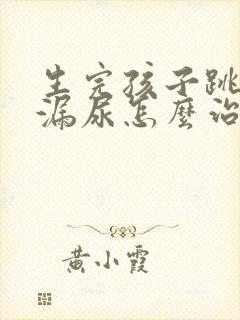 生完孩子跳
漏尿怎麼治
黄小霞